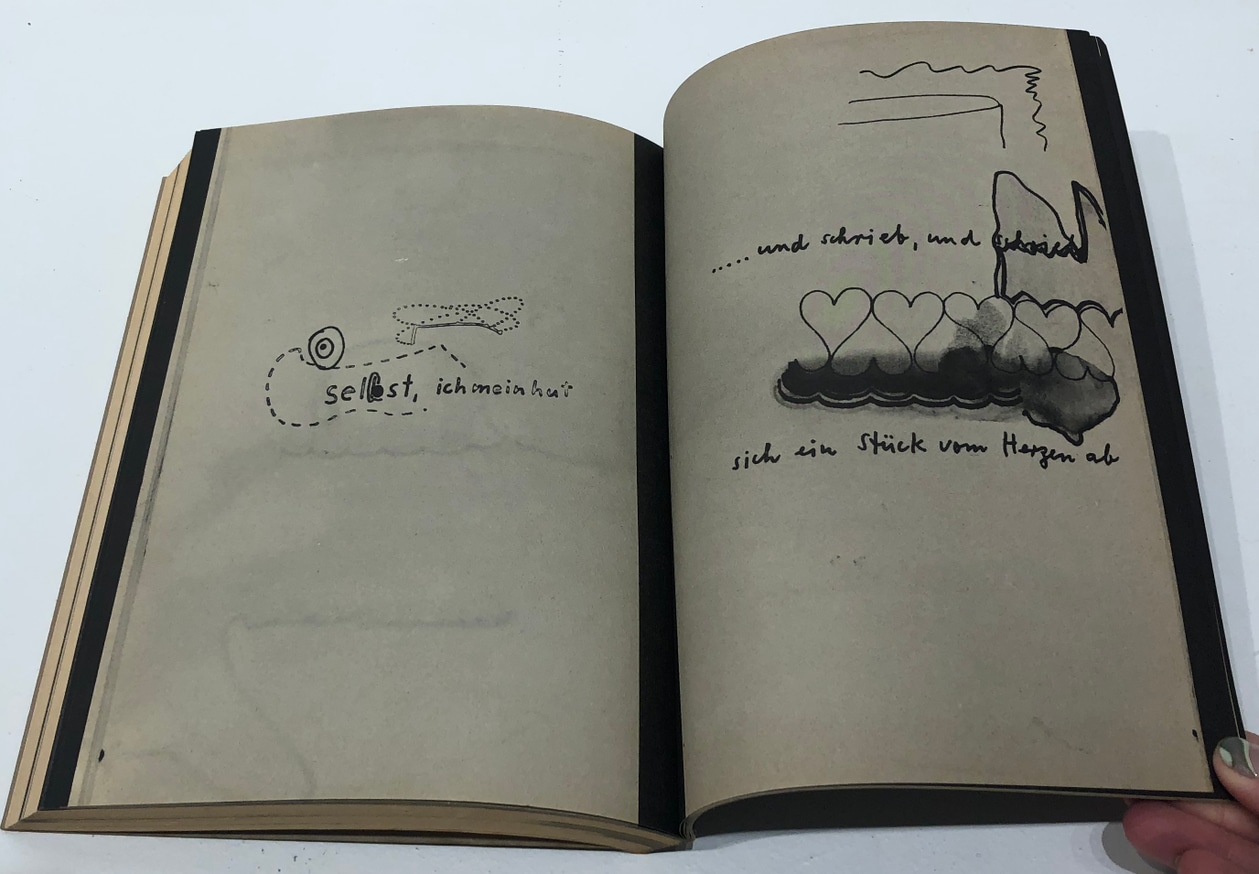 selbst, ich mein hut
..... und schrieb, und schrieb
sich ein Stück vom Herzen ab